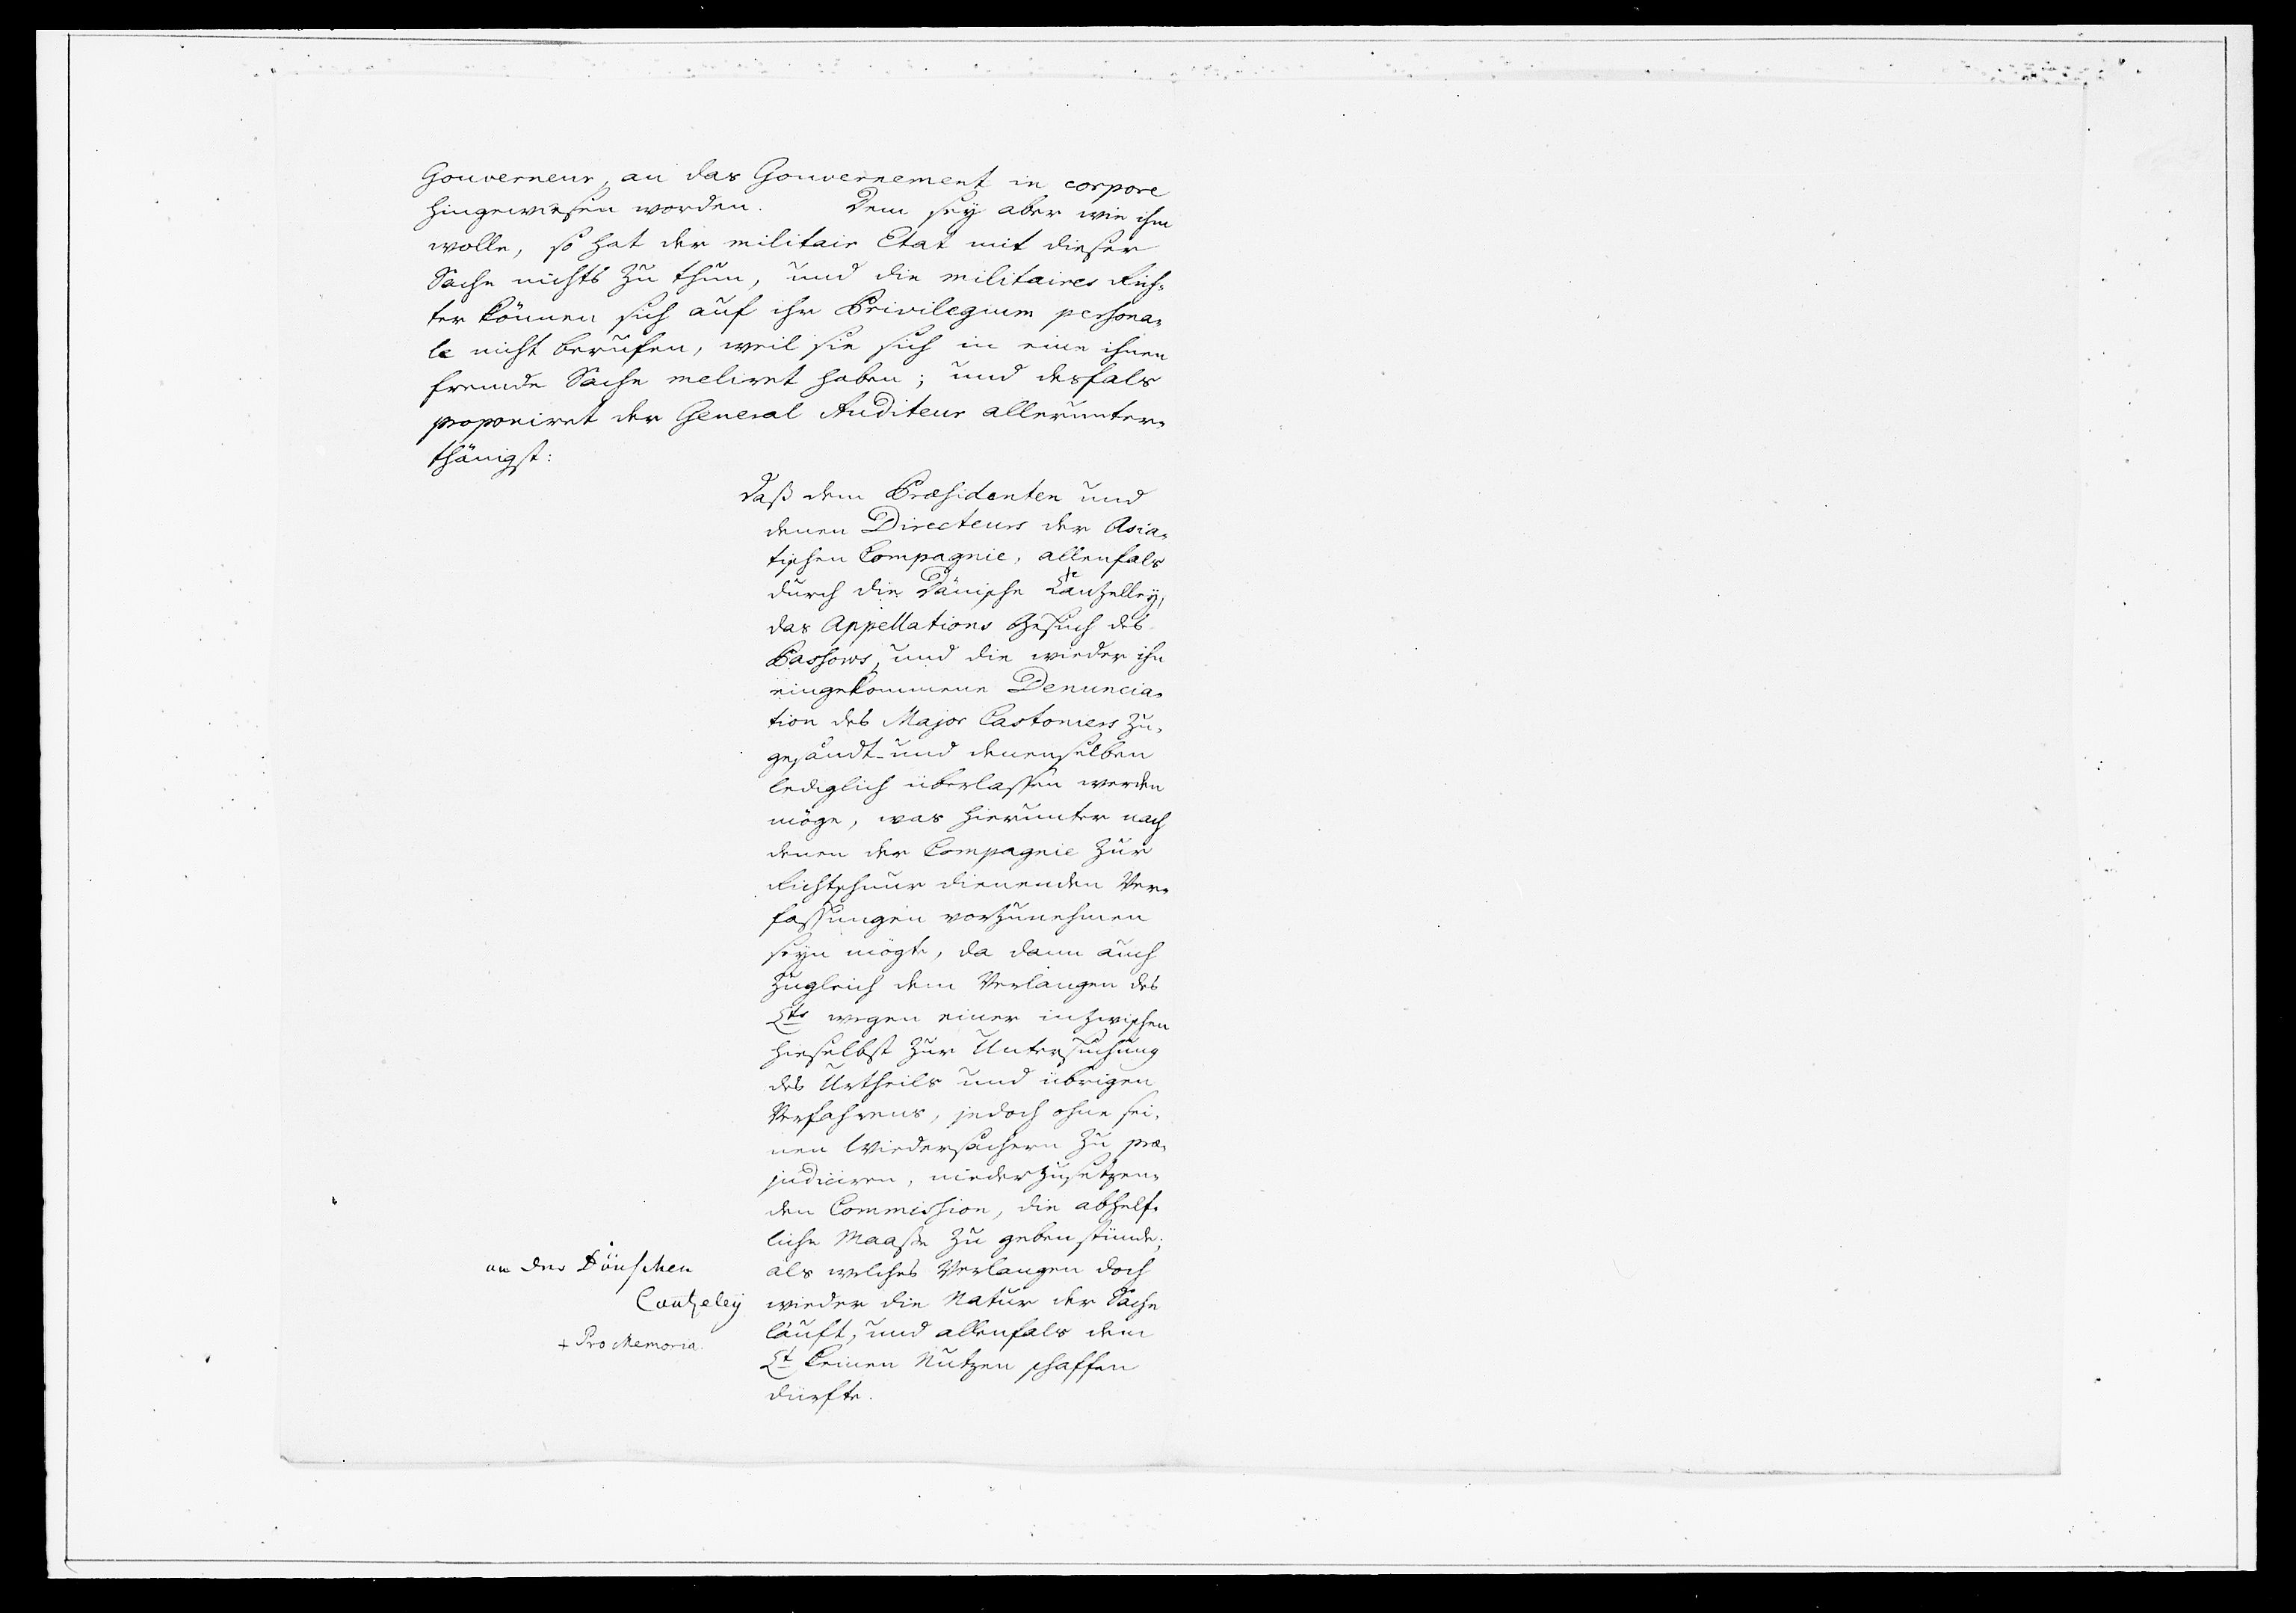 Gouverneur, an das Gouvernement in corpore
hingewiesen worden. Dem sey aber wie ihm
wolle, so hat der militair Etat mit dieser
Sache nichts zu thun, und die militaires Rich-
ter können sich auf ihr Privilegium persona-
le nicht berufen, weil sie sich in eine ihnen
fremde Sache meliret haben; und desfals
proponiret der General Auditeur allerunter-
thänigst:
Daß dem Præsidenten und
denen Directeurs der Asia-
tischen Compagnie, allenfals
durch die Dänische Cantzelley,
das Appellations Gesuch des
Passows, und die wieder ihn
eingekommene Denuncia-
tion des Major Castoniers zu-
gesandt- und denenselben
lediglich überlassen werden
möge, was hierunter nach
denen der Compagnie zur
Richtschnur dienenden Ver-
fassungen vorzunehmen
seyn mögte, da dann auch
zugleich dem Verlangen des
Lts wegen einer inzwischen
hieselbst zur Untersuchung
des Urtheils und übrigen
Verfahrens, jedoch ohne sei-
nen Wiedersachern zu præ-
judiciren, niederzusetzen-
den Commission, die abhelf-
liche Maaße zu geben stünde;
als welches Verlangen doch
wieder die Natur der Sache
läuft, und allenfals dem
Lt keinen Nutzen schaffen
dürfte.
an der Dänschen
Cantzeley
+ Pro Memoria.